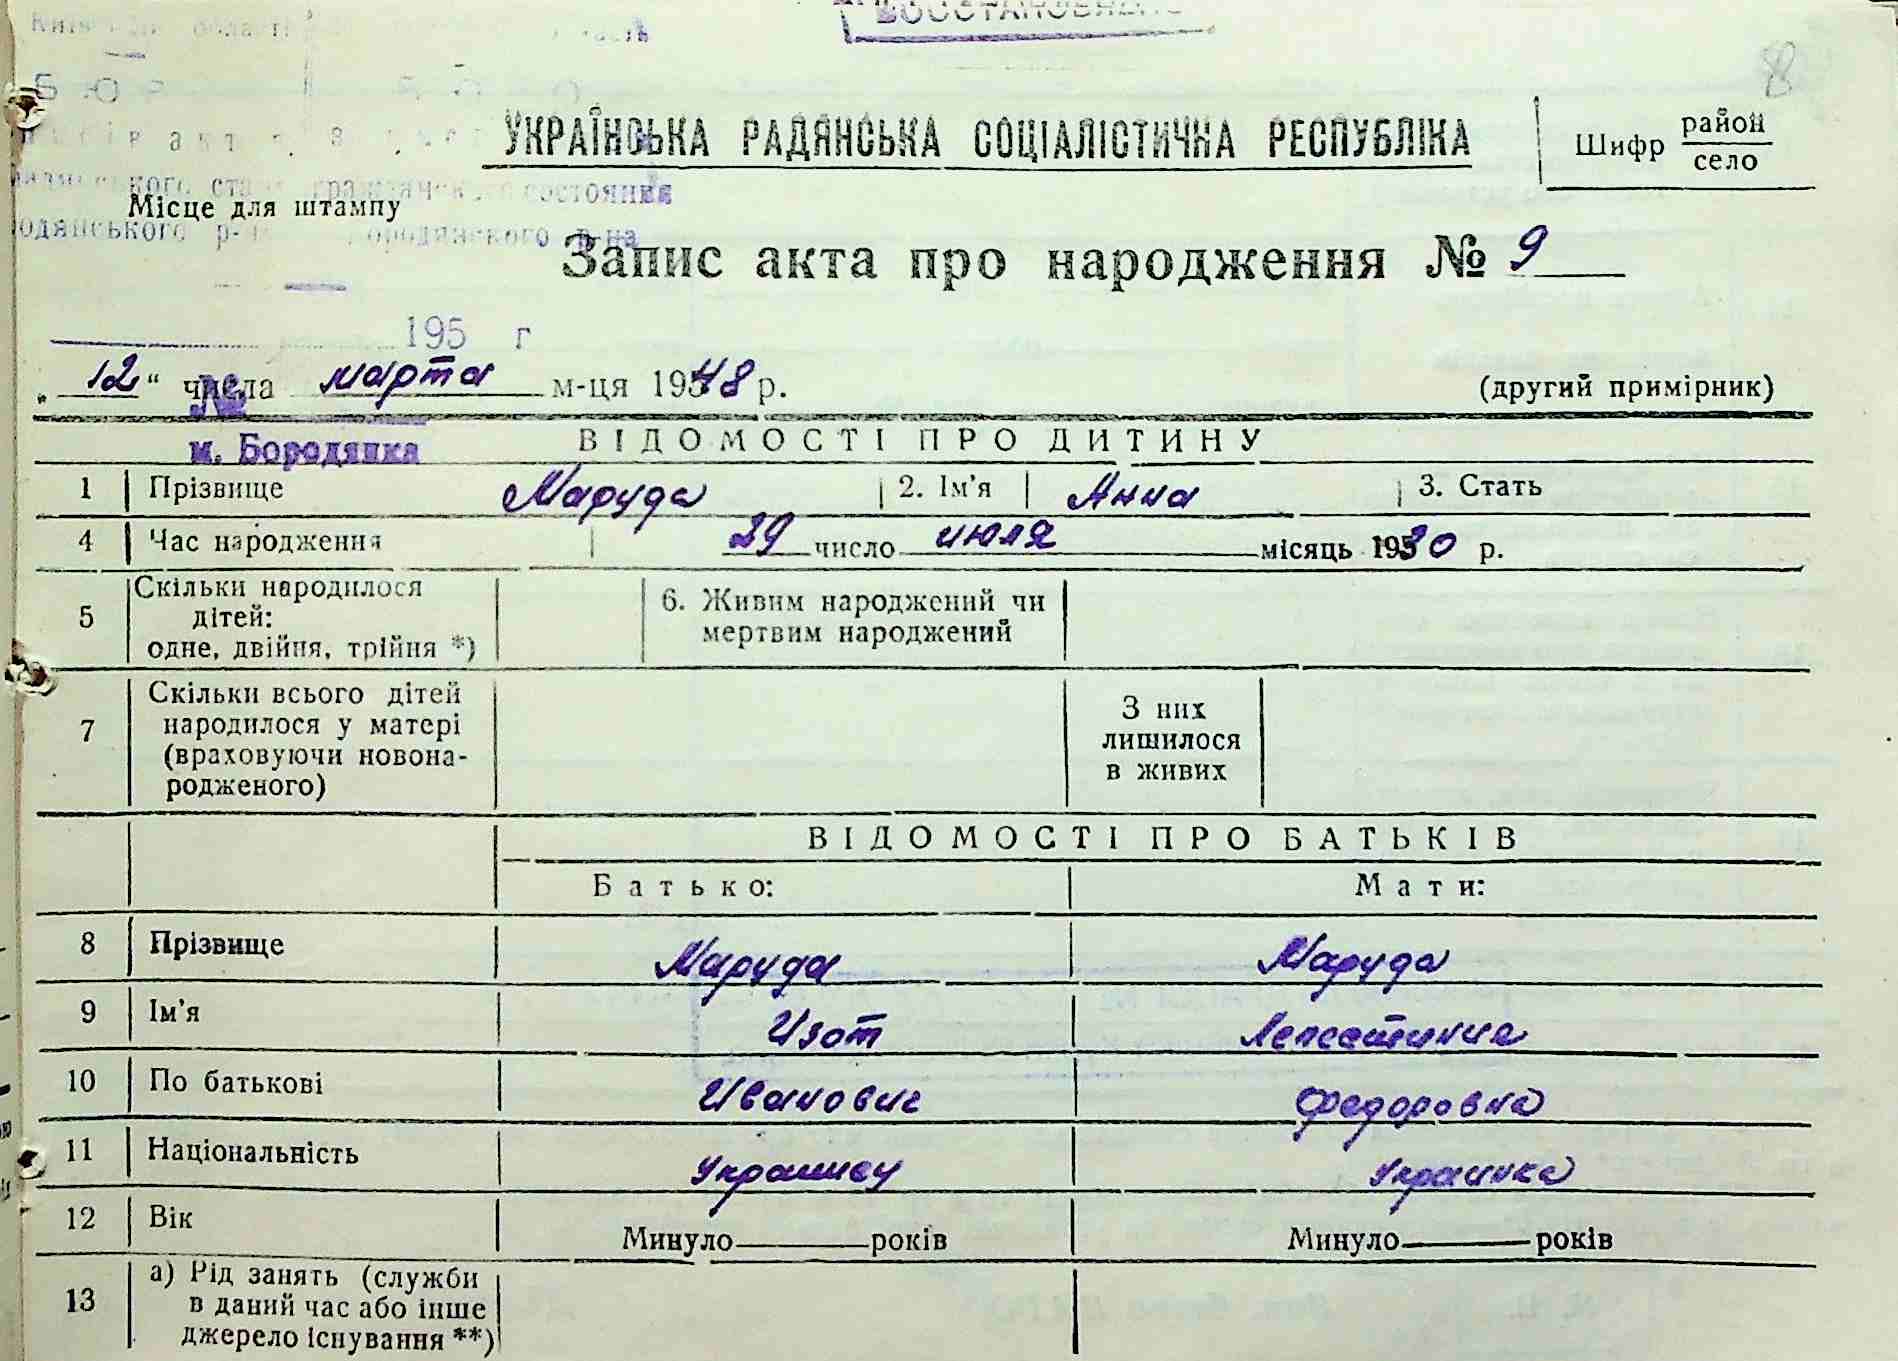 ВОССТАНОВЛЕНО
8
УКРАЇНСЬКА РАДЯНСЬКА СОЦІАЛІСТИЧНА РЕСПУБЛІКА
Шифр район село
Місце для штампу
Запис акта про народження № 9
195 г
„12“ числа марта м-ця 1948 р.
(другий примірник)
№
м. Бородянка
ВІДОМОСТІ ПРО ДИТИНУ
1 Прізвище Маруда 2. Ім'я Анна 3. Стать
4 Час народження 29 число июля місяць 1930 р.
5 Скільки народилося дітей: одне, двійня, трійня *) 6. Живим народжений чи мертвим народжений
7 Скільки всього дітей народилося у матері (враховуючи новонародженого) З них лишилося в живих
ВІДОМОСТІ ПРО БАТЬКІВ
Батько: Мати:
8 Прізвище Маруда Маруда
9 Ім'я Изот
10 По батькові Иванович Федоровна
11 Національність Украинец Украинка
12 Вік Минуло років Минуло років
13 а) Рід занять (служби в даний час або інше джерело існування **)